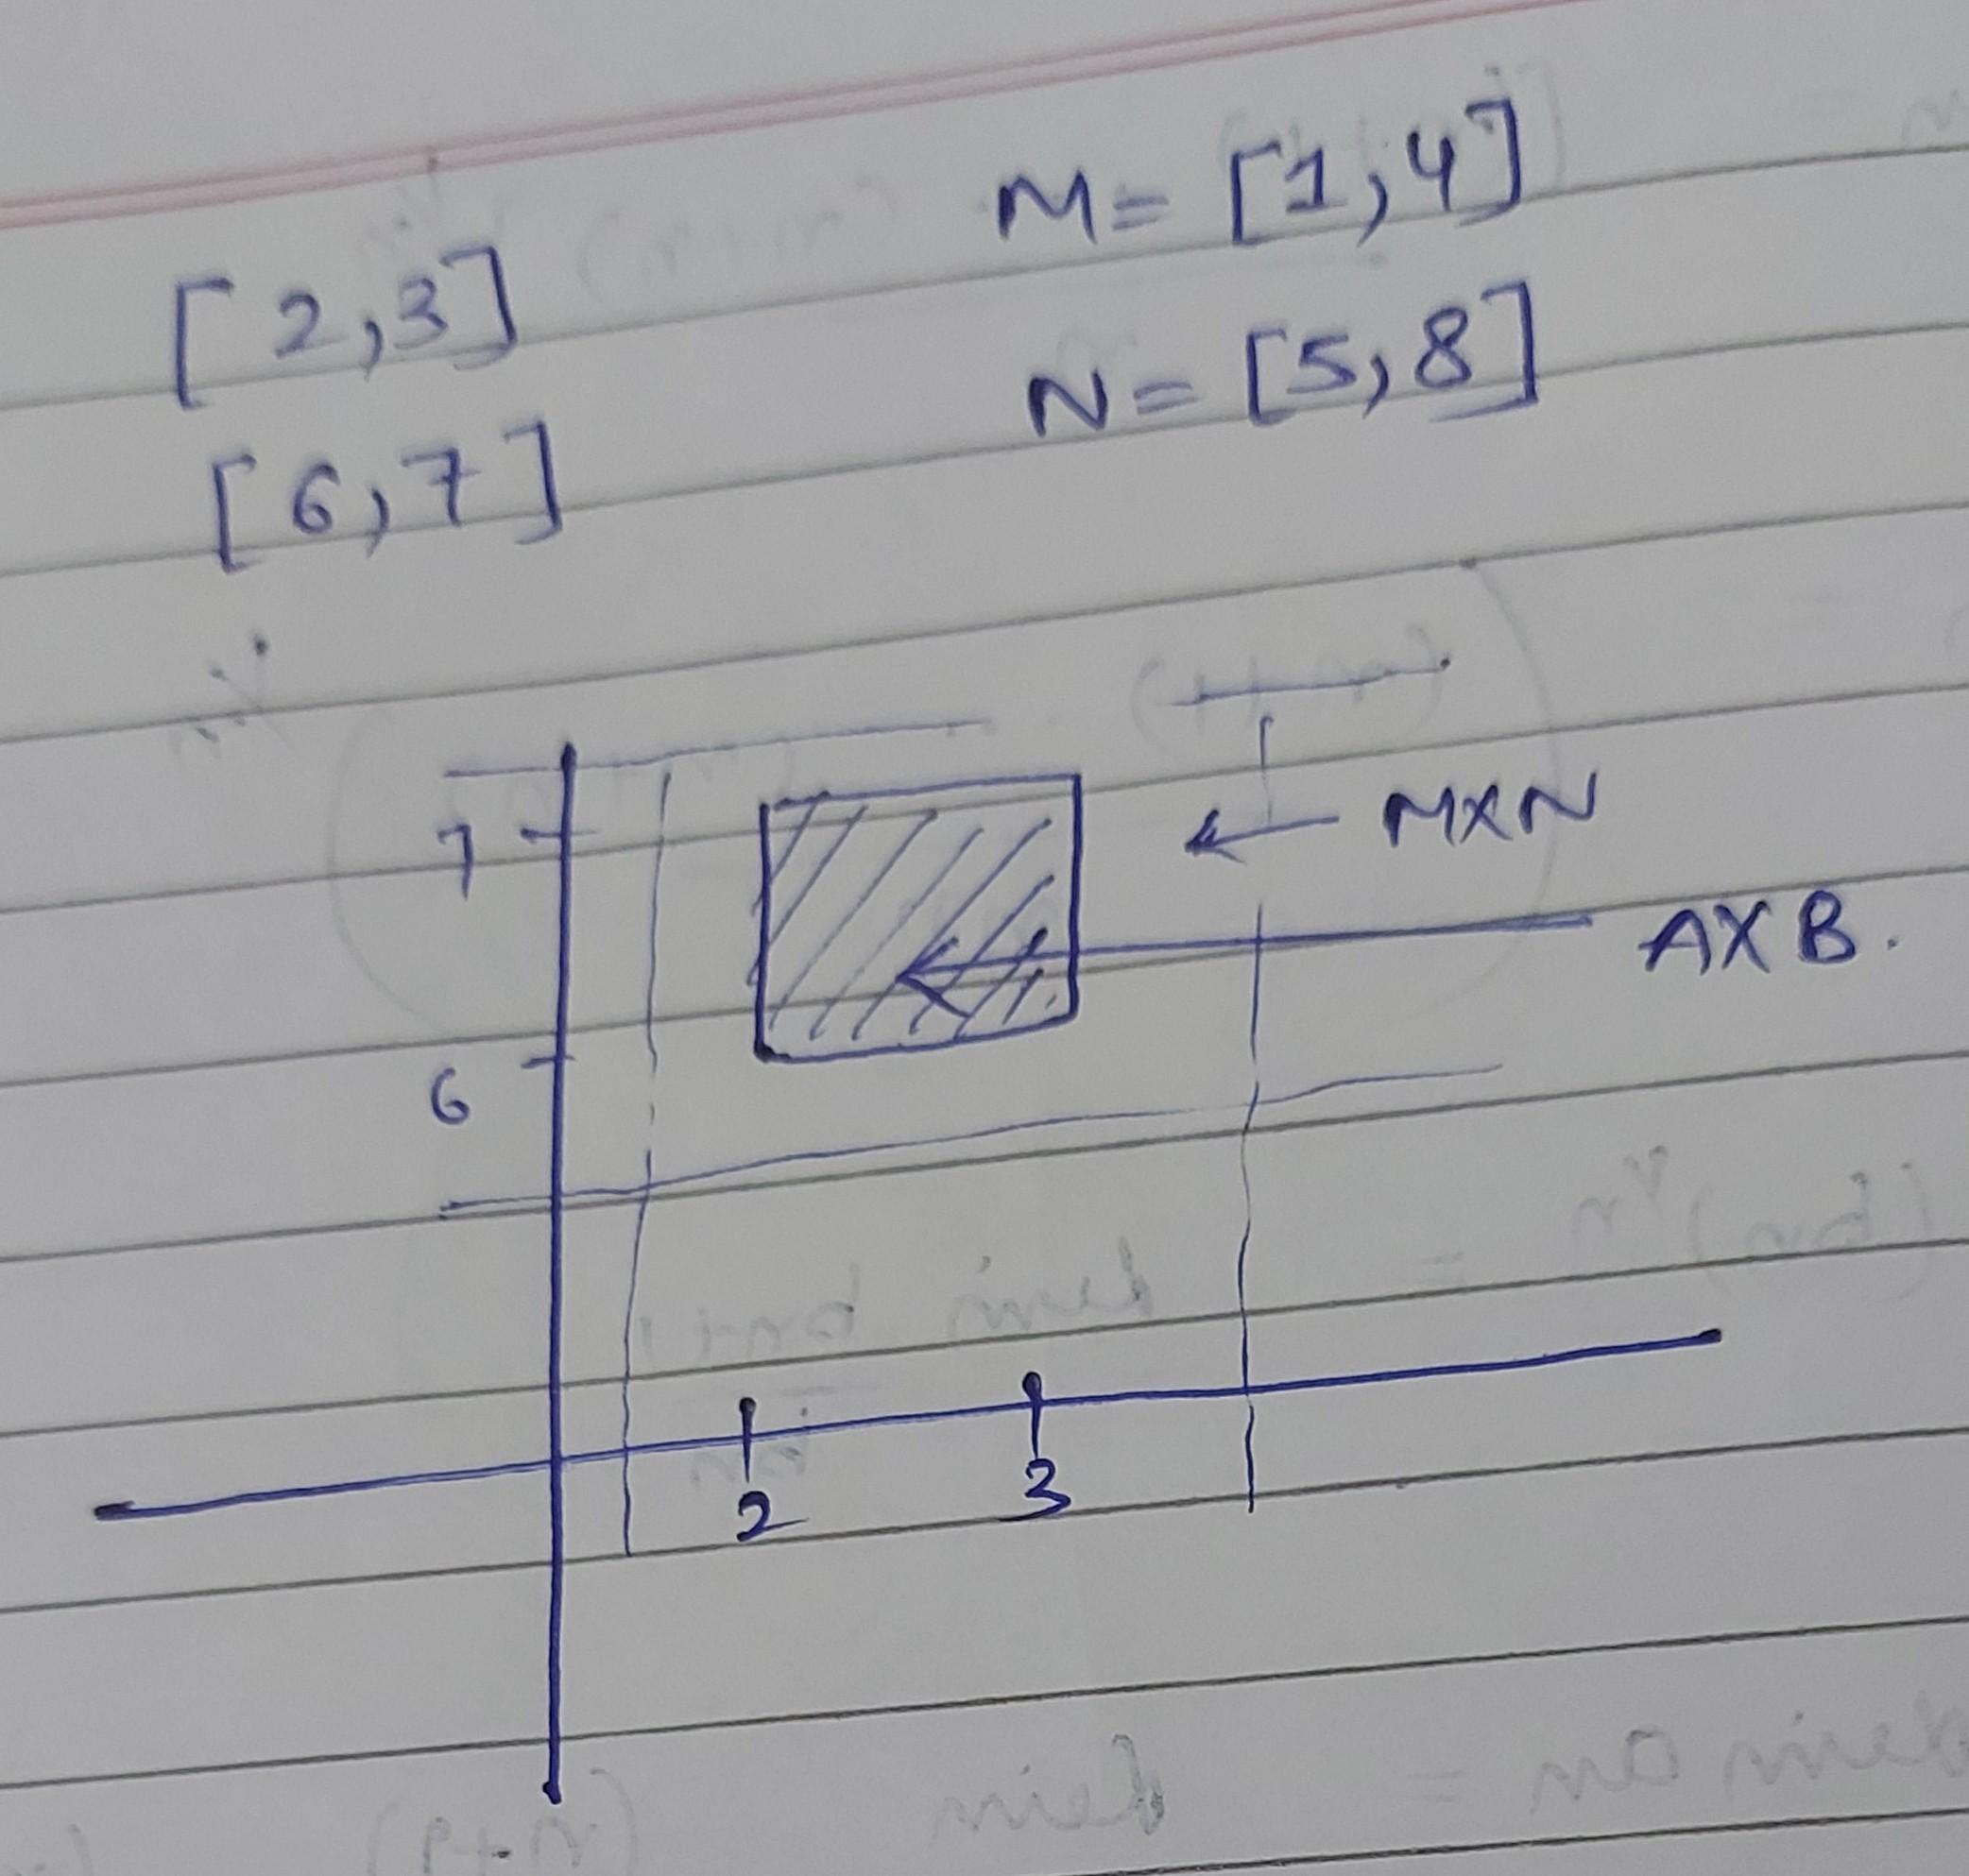 M= [1,4]
[2,3]
N= [5,8]
[6,7]
7
MXN
AXB.
6
2
3